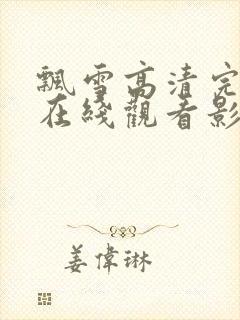 飄雪高清完
在綫觀看影
姜偉琳